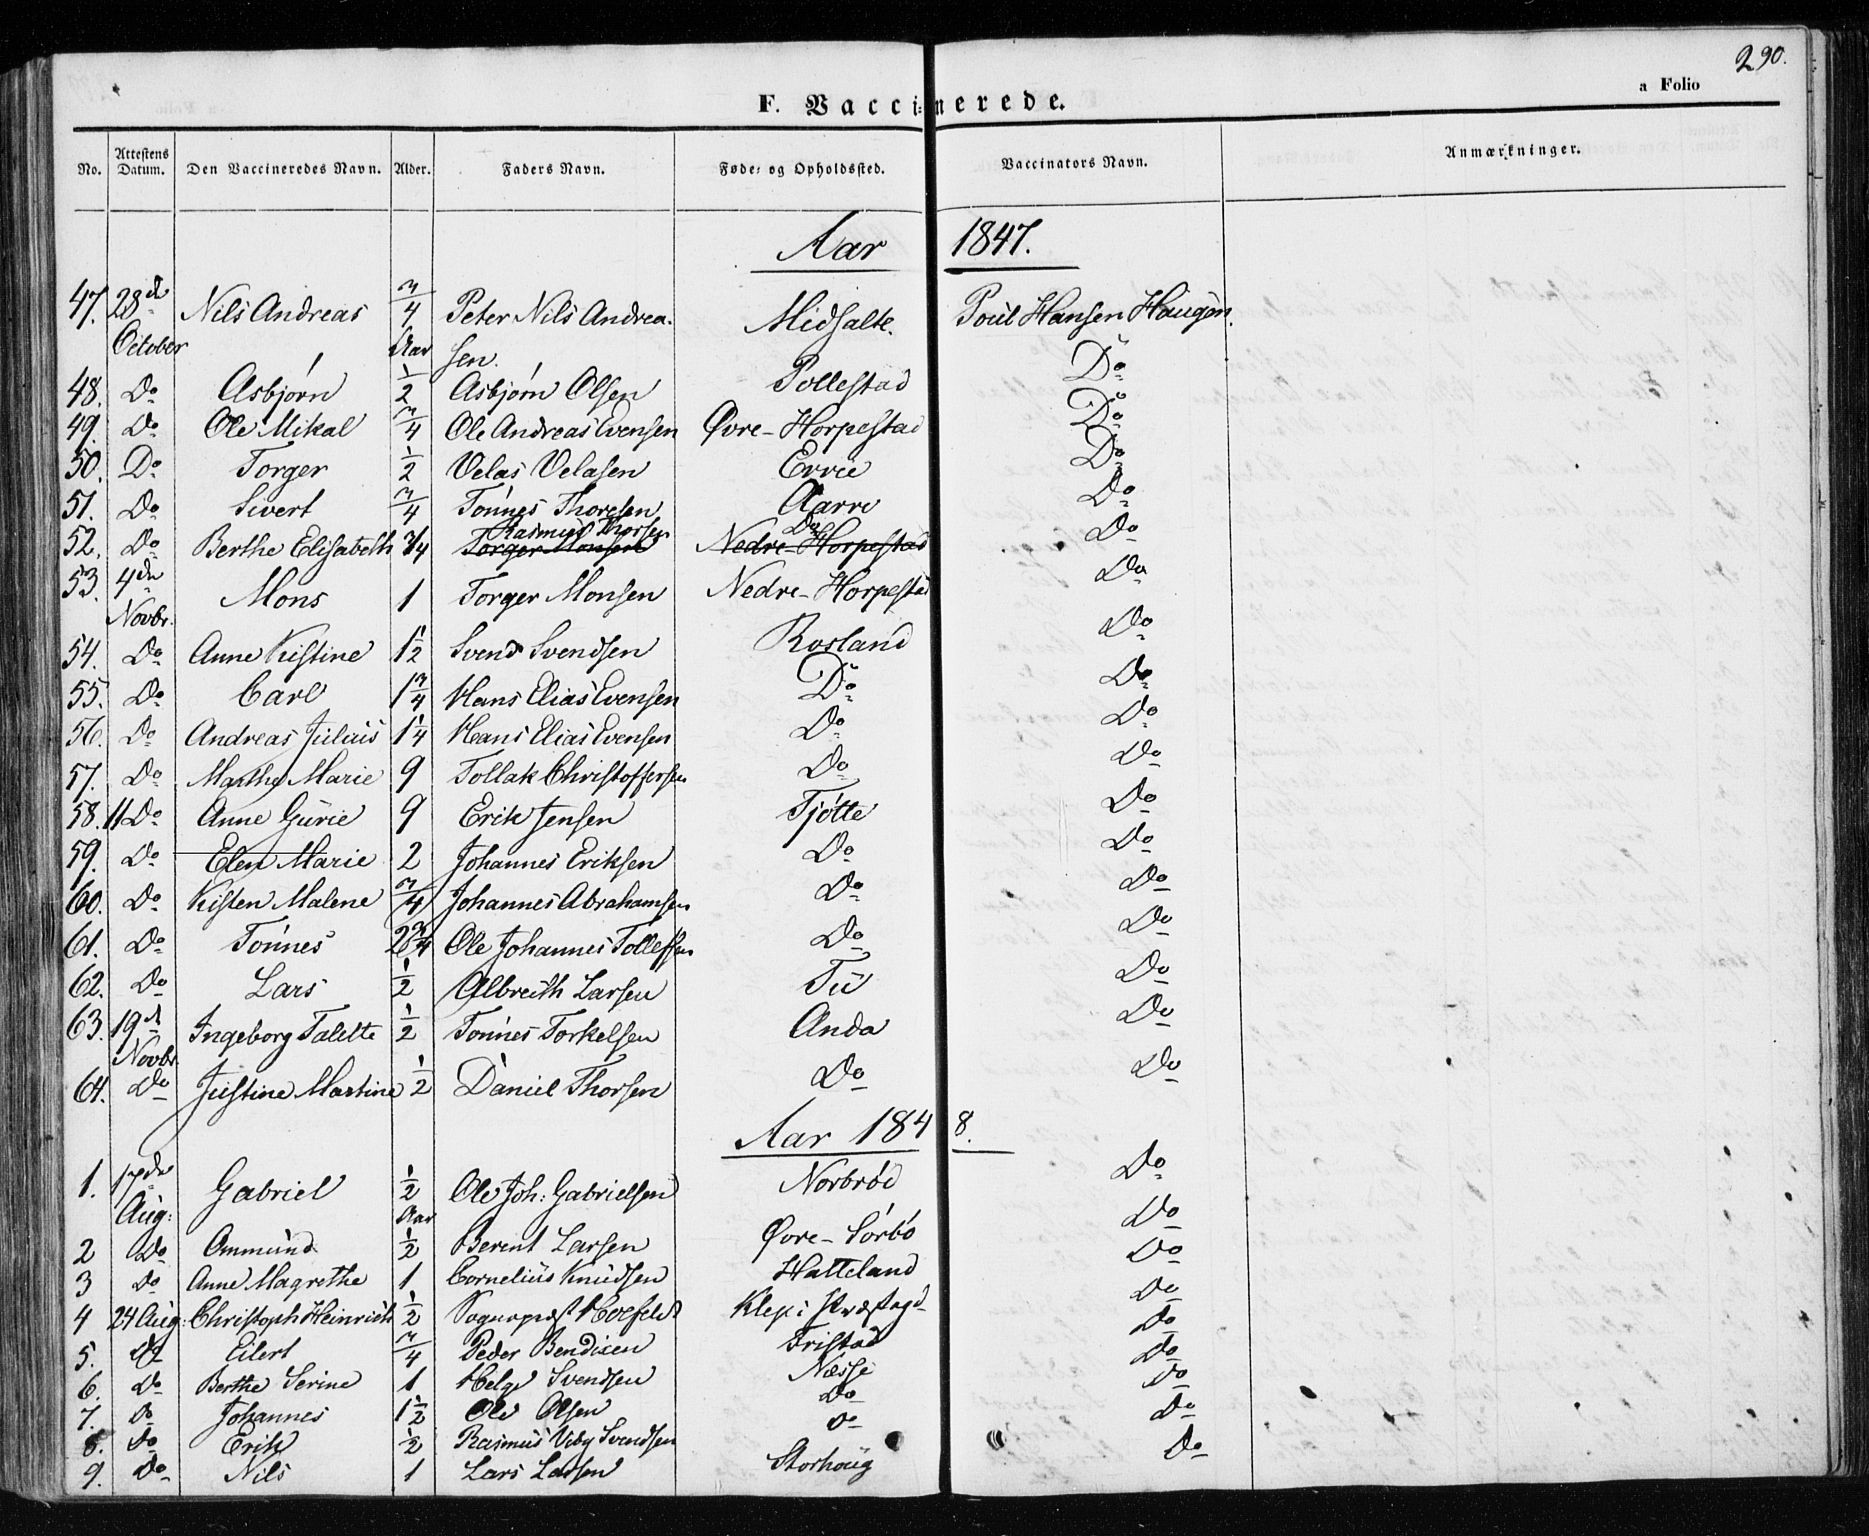 290.
a Folio
F. Vaccinerede.
No. Attestens Datum. Den Vaccineredes Navn. Alder. Faders Navn. Føde- og Opholdssted. Vaccinators Navn. Anmærkninger.
Aar 1847.
47. 28de October Nils Andreas 3/4 Aar Peter Nils Andreasen. Midsalte. Poul Hansen Haugen.
48. Do Asbjørn 1/2 Asbjørn Olsen Pollestad Do
49. Do Ole Mikal 3/4 Ole Andreas Evensen Øvre-Horpestad Do
50. Do Torger 1/2 Velas Velasen Errie Do
51. Do Sivert 3/4 Tønnes Thoresen Aarre Do
52. Do Berthe Elisabeth 3/4 Torger Monsen Rasmus Thorsen Nedre-Horpestad Do Do
53. 4de Novbr. Mons 1 Torger Monsen Nedre-Horpestad Do
54. Do Anne Kistine 1 1/2 Svend Svendsen Rosland Do
55. Do Carl 1 3/4 Hans Elias Evensen Do Do
56. Do Andreas Julius 1 1/4 Hans Elias Evensen Do Do
57. Do Marthe Marie 9 Tollak Christoffersen Do Do
58. 11 Do Anne Gurie 9 Erik Jensen Tjøtte Do
59. Do Elen Marie 2 Johannes Eriksen Do Do
60. Do Kisten Malene 3/4 Johannes Abrahamsen Do Do
61. Do Tønnes 2 3/4 Ole Johannes Tollefsen Do Do
62. Do Lars 1/2 Albreith Larsen Tu Do
63. 19d Novbr Ingeborg Talette 1/2 Tønnes Torkelsen Anda Do
64. Do Justine Martine 1/2 Daniel Thorsen Do Do
Aar 1848.
1. 17de Aug: Gabriel 1/2 Aar Ole Joh: Gabrielsen Norbrød Do
2 Do Ommund 1/2 Berent Larsen Øvre-Sørbø Do
3 Do Anne Magrethe 1 Cornelius Knudsen Hatteland Do
4 24 Aug: Christoph Heinrich 1/2 Sognepræst Hoefeldt Klep: Præstegd Do
5. Do Eilert 3/4 Peder Bendixen Fristad Do
6. Do Berthe Serine 1 Helge Svendsen Næsse Do
7. Do Johannes 1 1/2 Ole Olsen Do Do
8. Do Erik 1/2 Rasmus Viby Svendsen Do Do
9. Do Nils 1 Lars Larsen Storhoug Do